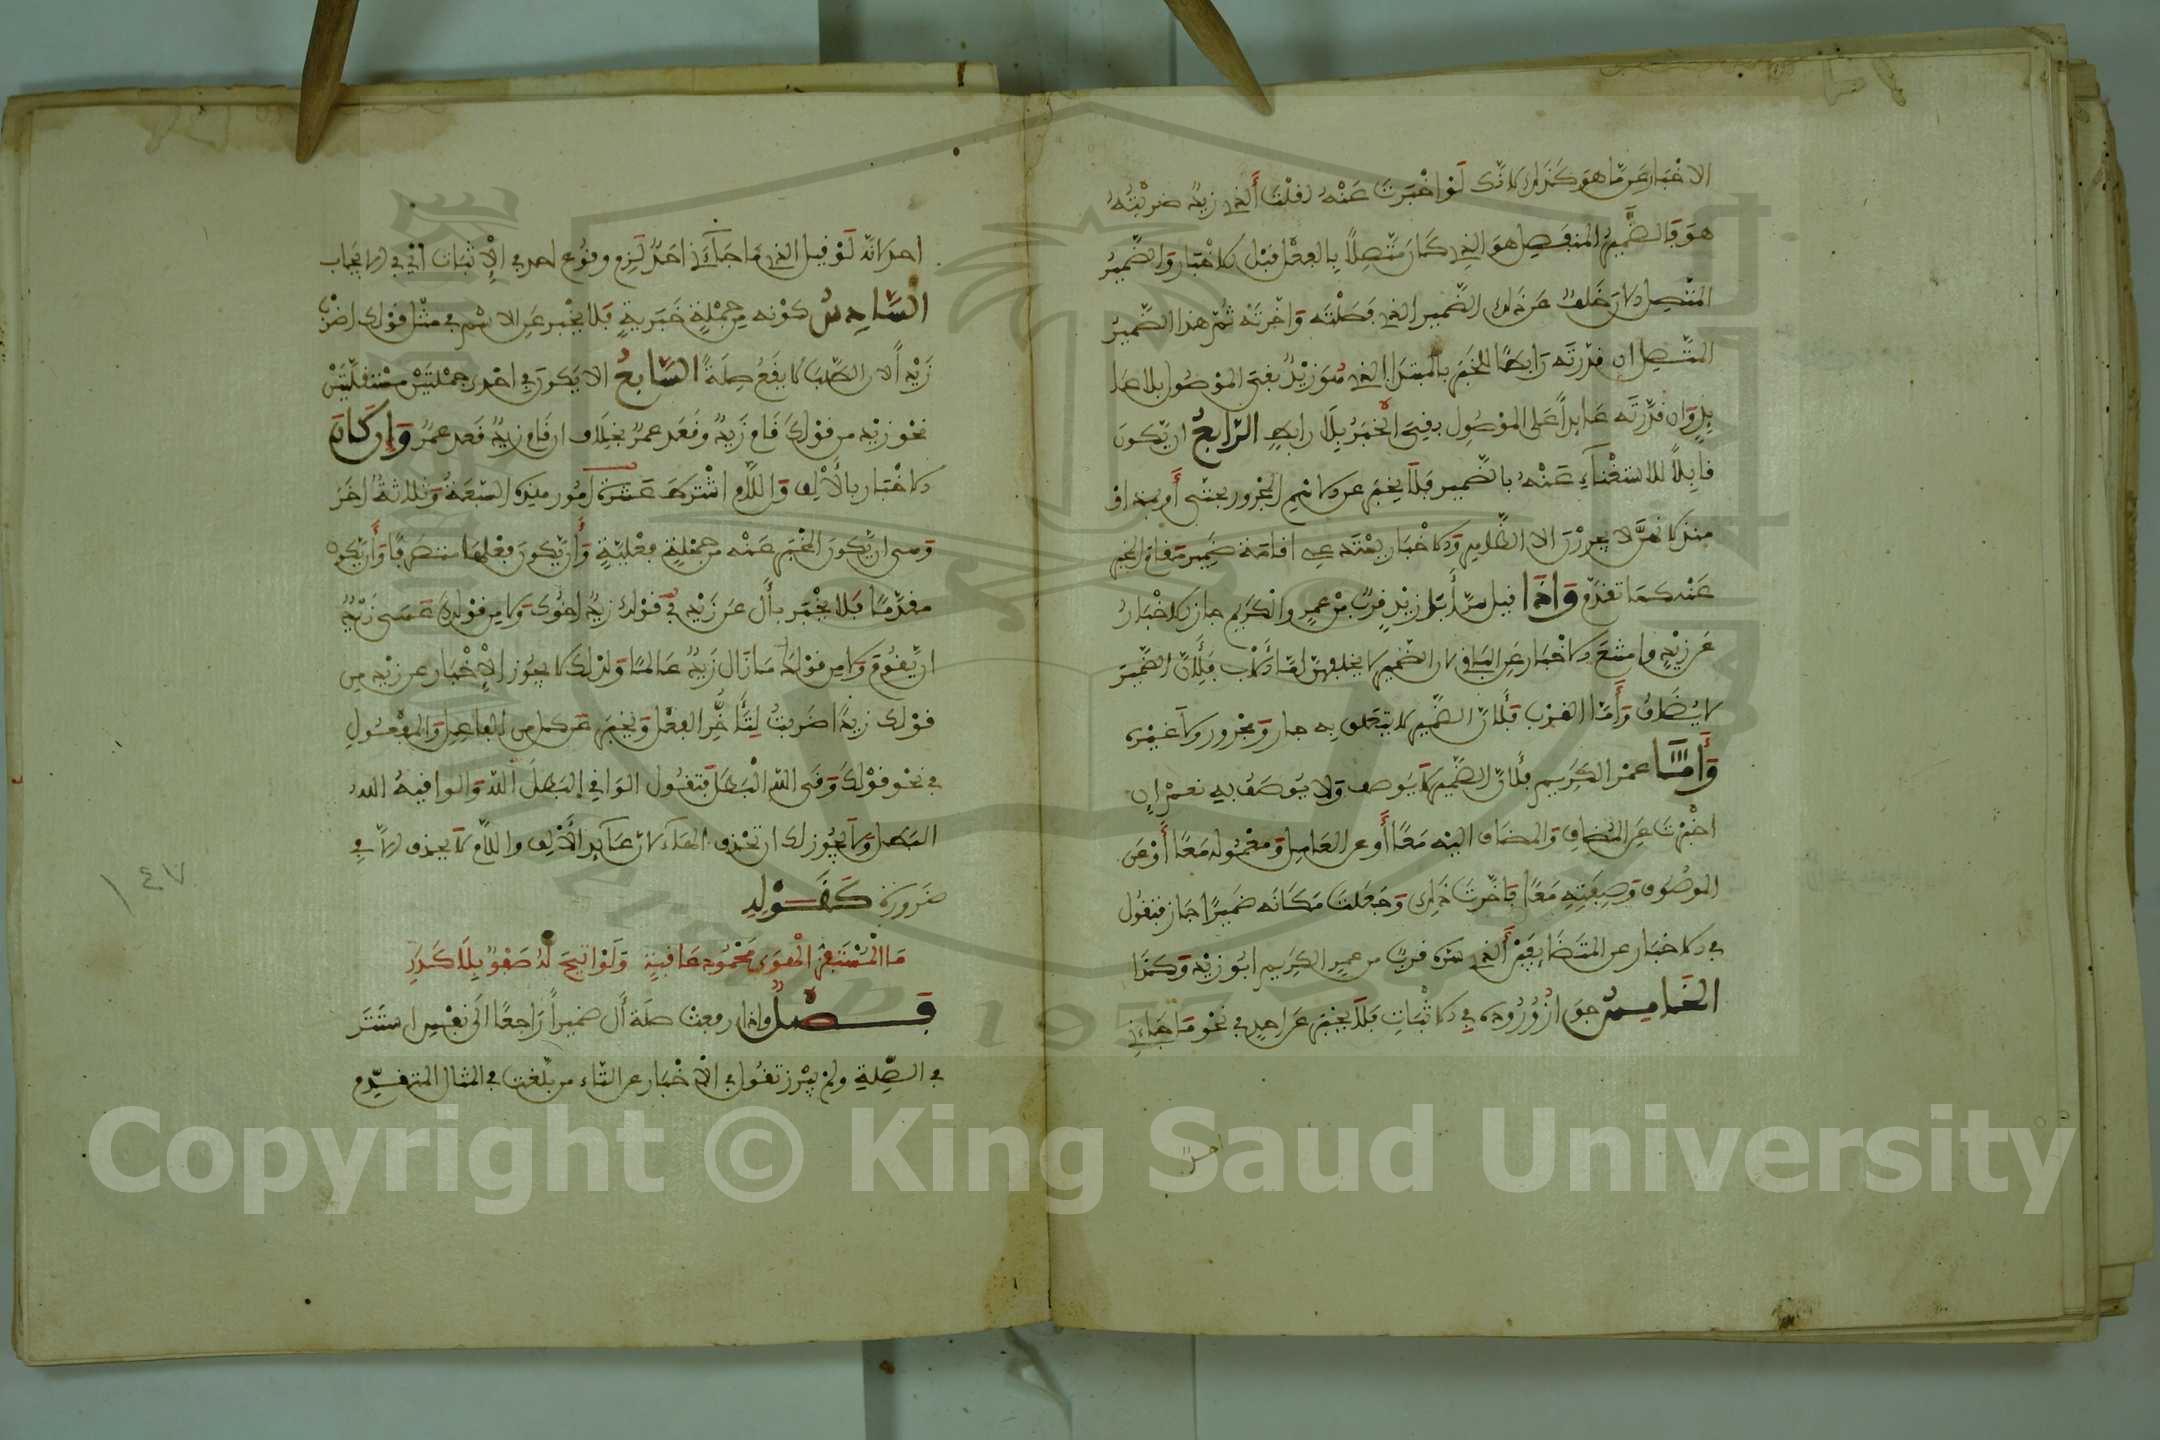 الاخبار عن ما هو كذلك لانك لو اخبرت عنه لقلت ألذي زيد ضربته
هو فالضمير المنفصل هو الذي كان متصلا بالفعل قبل الاخبار والضمير
المتصل الان خلف عن ذلك الضمير الذي فصلته واخرته ثم هذا الضمير
المتصل ان قدرته رابطا للخبر بالمبتدا الذي هو زيد بقي الموصول بلا عا
يد وان قدرته عايدا على الموصول بقي الخبر بلا رابط الرابع ان يكون
قابلا للاستغناء عنه بالضمير فلا يخبر عن الاسم المجرور بحتى أو بمذ او
منذ لانهن لا يجررن الا الظاهر والاخبار يستدعي اقامة ضمير مقام المخبر
عنه كما تقدم وإذا قيل سر أبا زيد قرب من عمرو الكريم جاز الاخبار
عن زيد وامتنع الاخبار عن الباقي لان الضمير لا يخلفهن اما الاب فلأن الضمير
لا يضاف وأما القرب فلأن الضمير لا يتعلق به جار ومجرور ولا غيره
وأما عمرو الكريم فلأن الضمير لا يوصف ولا يوصف به نعم ان
اخبرت عن المضاف والمضاف اليه معا أو عن العامل ومعموله معا أو عن
الموصوف وصفته معا فاخرت ذلك وجعلت مكانه ضميرا جاز فتقول
في الاخبار عن المتضايفين ألذي سره قرب من عمرو الكريم ابو زيد وكذا
الخامس جواز وروده في الاثبات فلا يخبر عن احد في نحو ما جاءني
احد
احد لانه لو قيل الذي ما جاءني احد لزم وقوع احد في الإثبات أي في الايجاب
السادس كونه من جملة خبرية فلا يخبر عن الاسم في مثل قولك اضرب
زيدا لان الطلب لا يقع صلة السابع الا يكون في احدى جملتين مستقلتين
نحو زيد من قولك قام زيد وقعد عمرو بخلاف ان قام زيد قعد عمرو وإن كان
الاخبار بالألف واللام اشترط عشرة أمور هذه السبعة وثلاثة اخر
وهي ان يكون المخبر عنه من جملة فعلية وأن يكون فعلها متصرفا وأن يكون
مقدما فلا يخبر بأل عن زيد في قولك زيد اخوك ولا من قولك عسى زيد
ان يقوم ولا من قولك ما زال زيد عالما ولذلك لا يجوز الإخبار عن زيد من
قولك زيدا ضربت لتأخر الفعل ويخبر عن كل من الفاعل والمفعول
في نحو قولك وقى الله البطل فتقول الواقي البطل الله والواقيه الله
البطل ولا يجوز لك ان تحذف الهاء لان عايد الألف واللام لا يحذف الا في
ضرورة كقوله
ما المستفز الهوى محمود عاقبة ولو اتيح له صفو بلا كدر
فصل واذا رفعت صلة أل ضميرا راجعا الى نفس ال استتر
في الصلة ولم يبرز تقول في الإخبار عن التاء من بلغت في المثال المتقدم
١٤٧
Copyright © King Saud University
1957